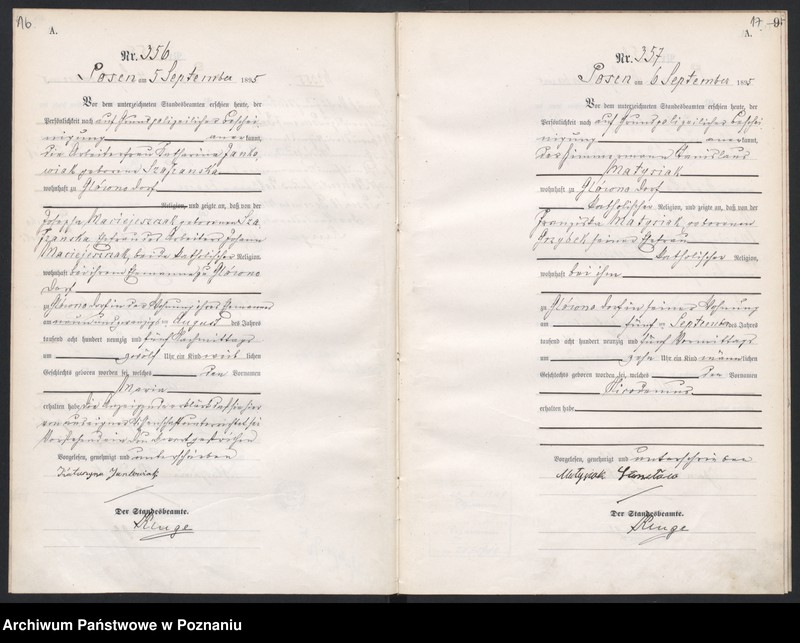 16
A.
Nr. 356
Posen am 5 September 1895
Vor dem unterzeichneten Standesbeamten erschien heute, der
Persönlichkeit nach auf Grund polizeilicher Beschei-
nigung anerkannt,
die Arbeiterfrau Katharina Janko-
wiak geborene Szafranska
wohnhaft zu Glówno Dorf
Religion, und zeigte an, daß von der
Josepha Maciejszczak geborenen Sza-
franska Ehefrau des Arbeiters Johann
Maciejszczak, beide katholischer Religion,
wohnhaft bei ihrem Ehemanne zu Glówno
Dorf
zu Glówno Dorf in der Wohnung ihres Ehemannes
am neunundzwanzigsten August des Jahres
tausend acht hundert neunzig und fünf Nachmittags
um zwölf Uhr ein Kind weiblichen
Geschlechts geboren worden sei, welches den Vornamen
Maria
erhalten habe. Die Anzeigende erklärte, daß sie hier-
von aus eigener Wissenschaft unterrichtet sei.
Vorstehend ein Druckwort gestrichen
Vorgelesen, genehmigt und unterschrieben
Katarzyna Jankowiak
Der Standesbeamte.
Kluge
17
A.
Nr. 357
Posen am 6 September 1895
Vor dem unterzeichneten Standesbeamten erschien heute, der
Persönlichkeit nach auf Grund polizeilicher Beschei-
nigung anerkannt,
der Zimmermann Stanislaus
Matysiak
wohnhaft zu Glówno Dorf
katholischer Religion, und zeigte an, daß von der
Franziska Matysiak geborenen
Grzybek seiner Ehefrau
katholischer Religion,
wohnhaft bei ihm
zu Glówno Dorf in seiner Wohnung
am fünften September des Jahres
tausend acht hundert neunzig und fünf Vormittags
um zehn Uhr ein Kind männlichen
Geschlechts geboren worden sei, welches den Vornamen
erhalten habe
Vorgelesen, genehmigt und unterschrieben
Matysiak Stanisław
Der Standesbeamte.
Kluge
Archiwum Państwowe w Poznaniu